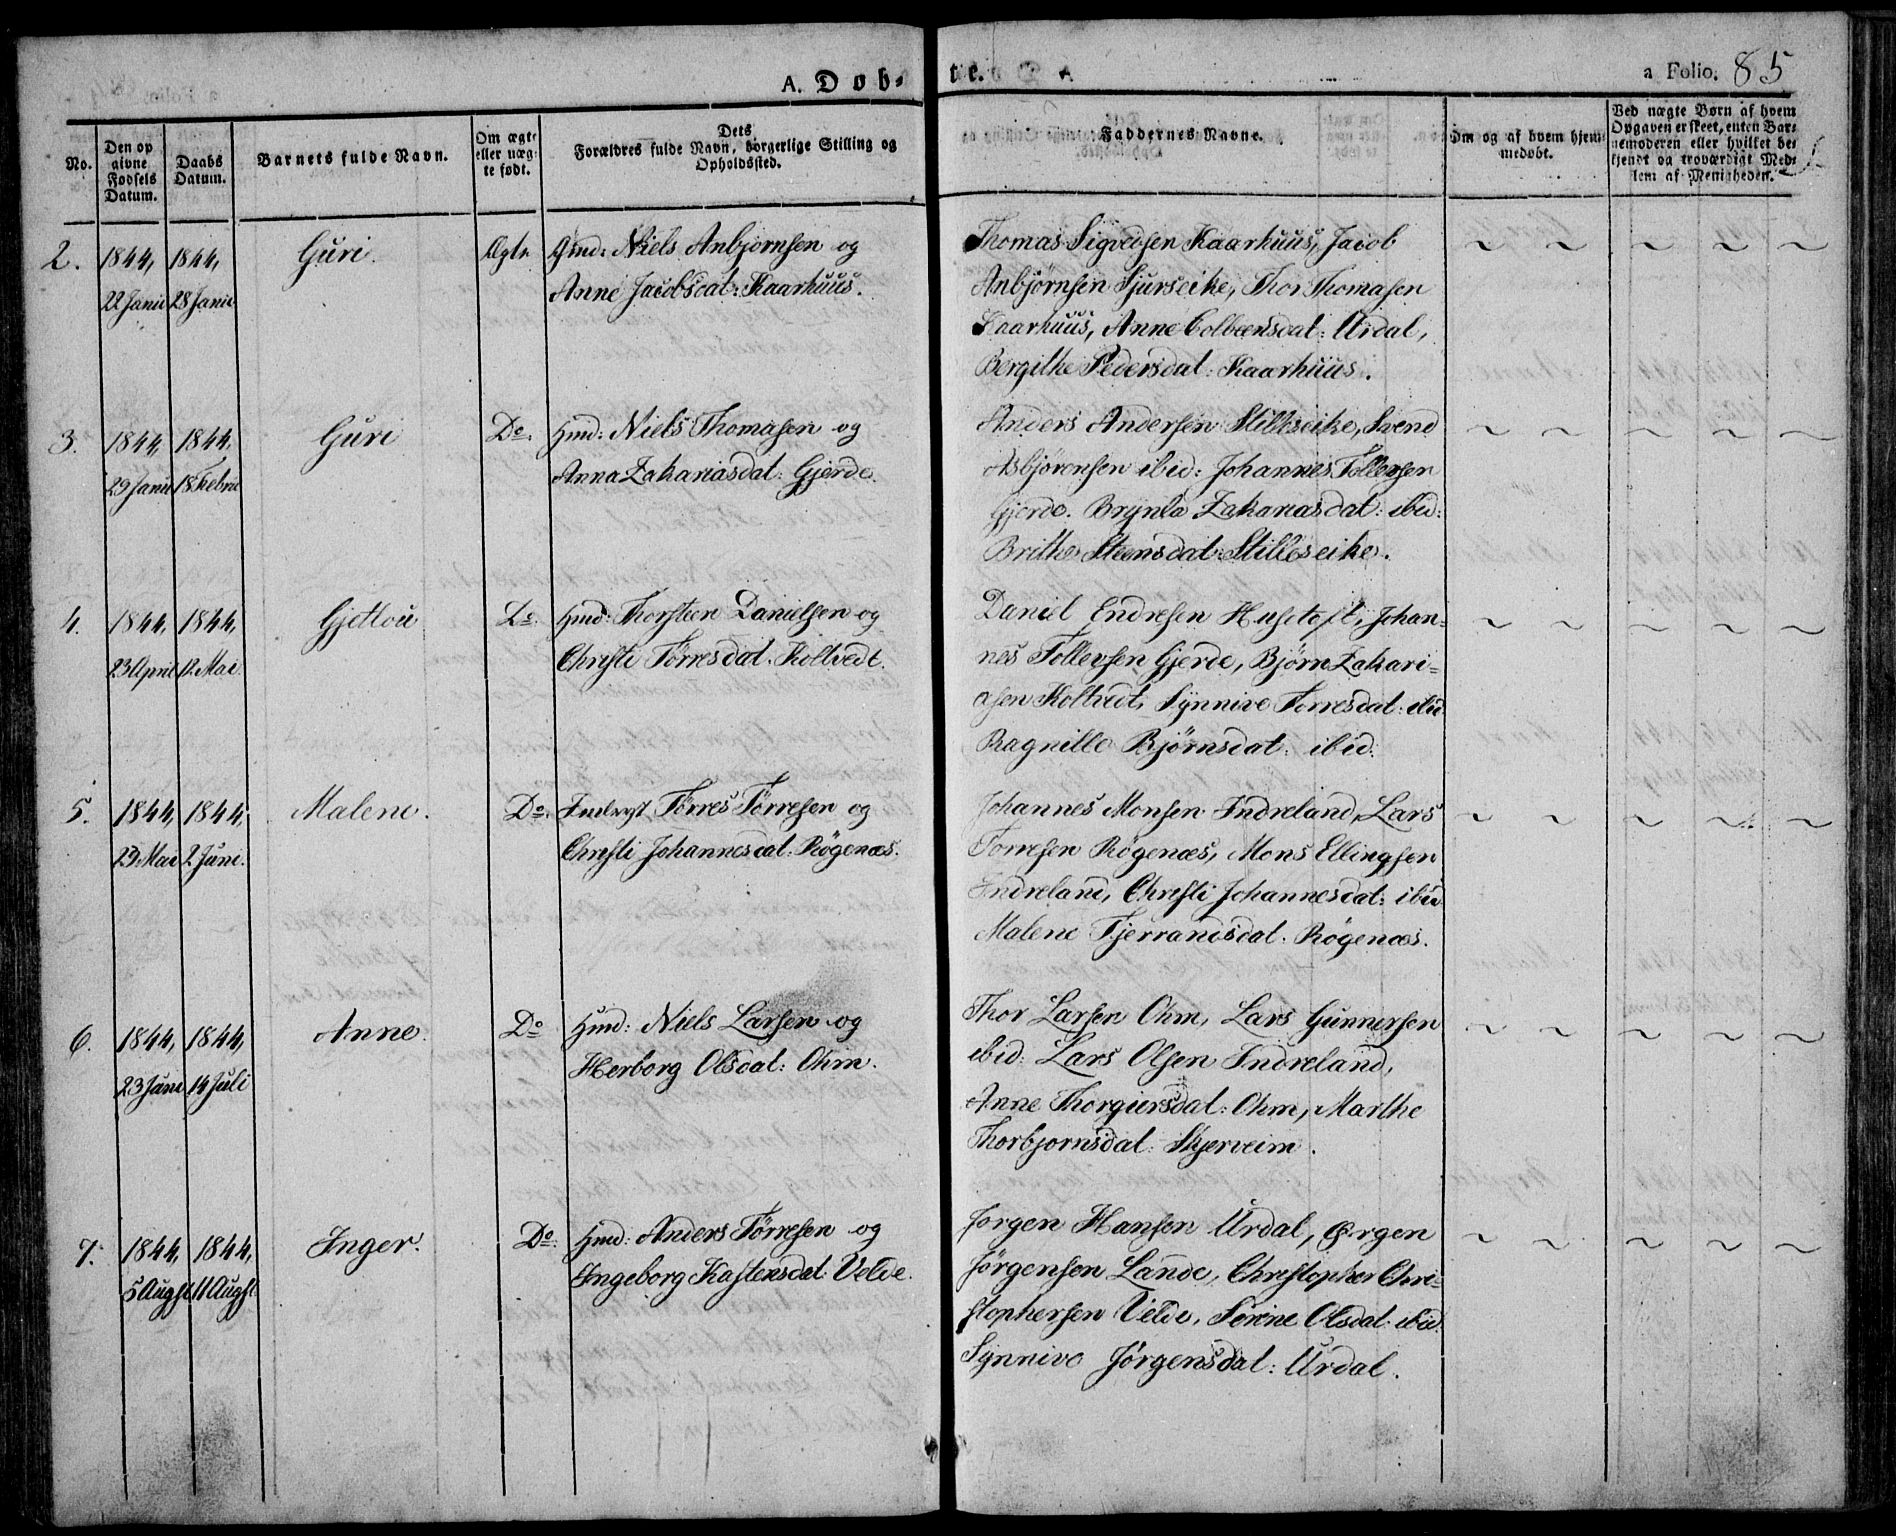 A. Dob=
te.
a Folio. 85
No.
Den op
givne
Fødsels
Datum.
Daabs
Datum.
Barnets fulde Navn.
Om ægte
eller uæg=
te født.
Dets
Forældres fulde Navn, borgerlige Stilling og
Opholdssted.
Faddernes Navne.
Om og af hvem hjem=
medøbt.
Ved uægte Børn af hvem
Opgaven er skeet, enten Bar=
nemoderen eller hvilket be=
kjendt og troværdigt Med=
lem af Menigheden.
2. 1844, 1844, Guri. Ægte Gmd: Niels Anbjornsen og
22 Janu 28 Janu Anne Jacobsdat: Kaarhuus.
Thomas Sigvedsen Kaarhuus, Jacob
Anbjørnsen Sjurseike, Thor Thomasen
Kaarhuus, Anne Colbensdat: Urdal,
Bergithe Pedersdat: Kaarhuus.
3. 1844, 1844, Guri Do. Hmd: Niels Thomasen og
29 Janu 18 Febru Anna Zakariasdat: Gjerde.
Anders Andersen Stilleseike, Svend
Asbjörensen ibid: Johannes Tollevsen
Gjerde. Brynla Zakariasdat: ibid:
Brithe Steensdat: Stilleseike.
4. 1844, 1844, Gjetlou Do. Hmd: Thorsteen Danielsen og
23 April 12 Mai Christi Törresdat: Koltvedt.
Daniel Endresen Husetoft, Johan=
nes Tollevsen Gjerde, Bjørn Zakari=
asen Koltvedt, Synnive Torresdat: ibid
Ragnille Bjørnsdat: ibid:
5. 1844, 1844, Malene. Do. Inderst Tørres Tørresen og
29 Mai 2 Juni. Christi Johannesdat: Røgenæs.
Johannes Monsen Indreland, Lars
Torresen Røgenæs, Mons Ellingsen
Indreland, Christi Johannesdat: ibid
Malene Tjerrandsdat: Røgenæs.
6. 1844, 1844, Anne. Do Hmd: Niels Larsen og
23 Juni 14 Juli Herborg Olsdat: Ohm.
Thor Larsen Ohm, Lars Gunnersen
ibid: Lars Olsen Indreland,
Anne Thorgiersdat: Ohm, Marthe
Thorbjornsdat: Skjerveim.
7. 1844, 1844, Inger. Do. Hmd: Anders Törresen og
5 Augst 11 Augst Ingeborg Kastensdat: Velde.
Jorgen Hansen Urdal, Ørgen
Jörgensen Lande, Christopher Chri=
stophersen Velde, Sörine Olsdat: ibid:
Synnive Jörgensdat: Urdal.